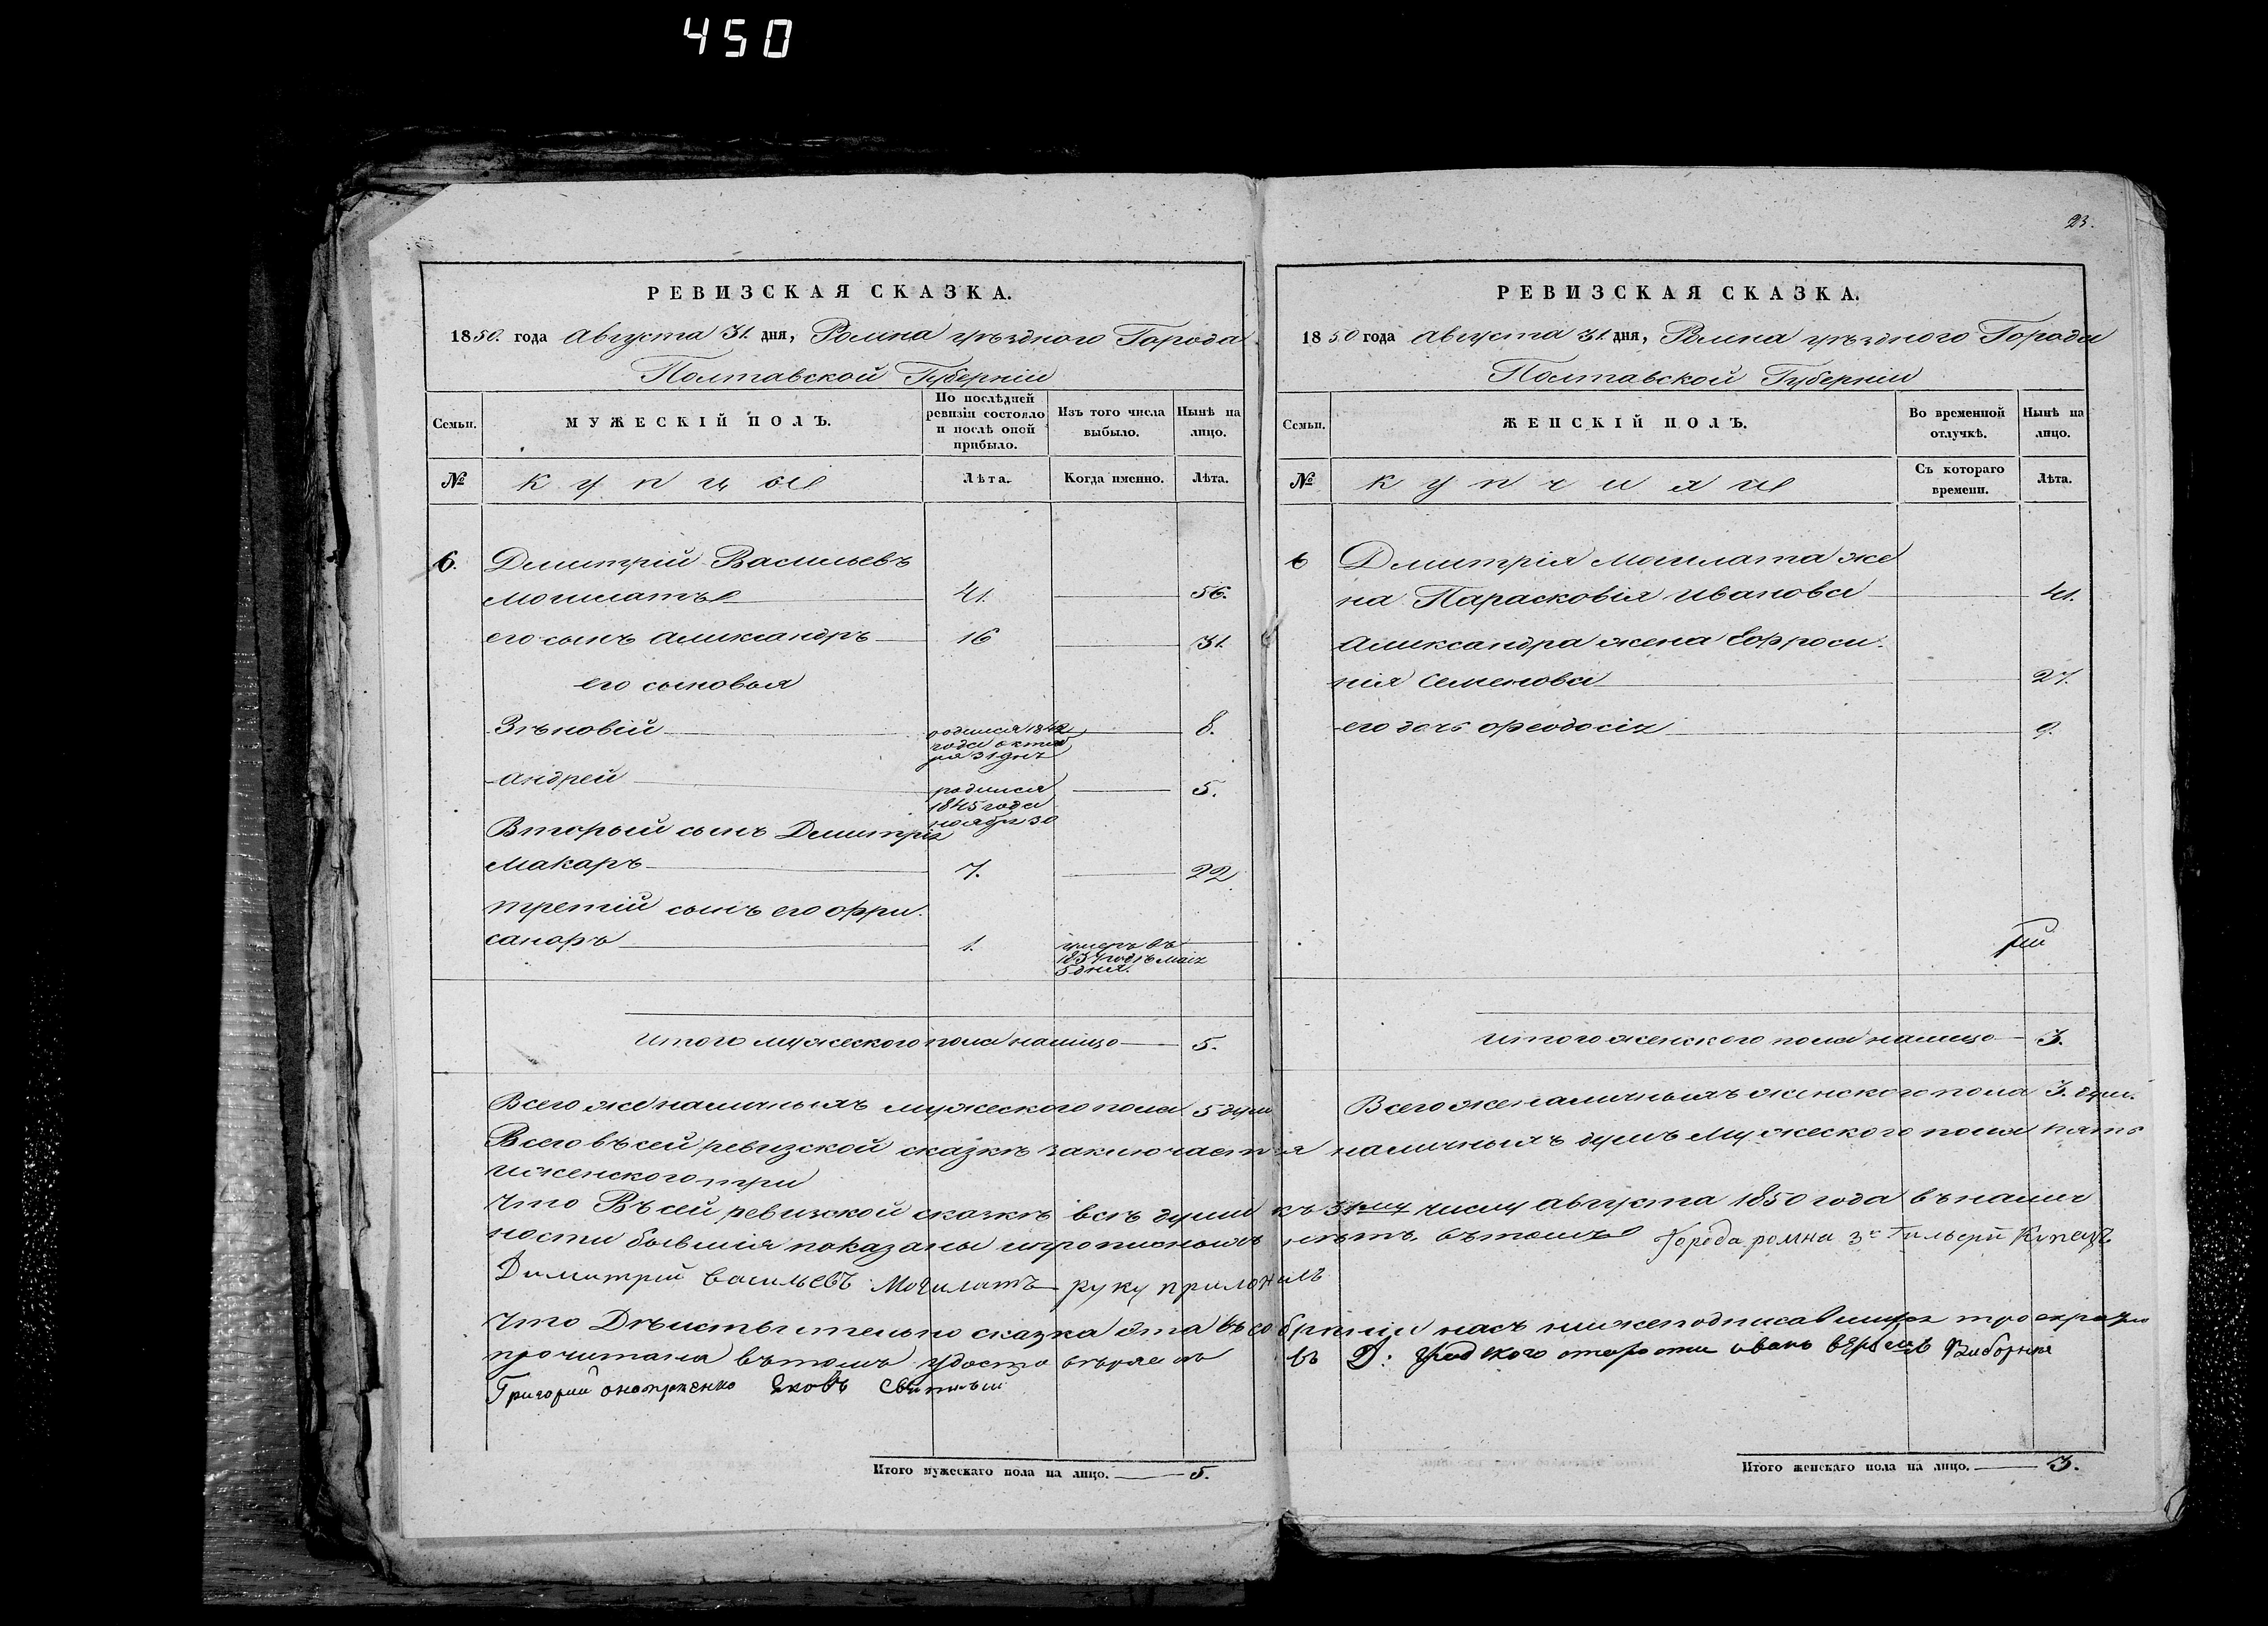 450
РЕВИЗСКАЯ СКАЗКА.
1850. года Августа 31. дня, Ромна уѣздного Города
Полтавской Губерніи
Семьи.
МУЖЕСКІЙ ПОЛЪ.
По послѣдней ревизіи состояло и послѣ оной прибыло.
Изъ того числа выбыло.
Нынѣ на лицо.
№
купцы
Лѣта.
Когда именно.
Лѣта.
6. Дмитрій Васильевъ
Могилатъ 41. 56.
его сынъ Александръ 16 31.
его сыновья
Зѣновій родился 1842 года октября 31 дня 8.
Андрей родился 1845 года ноября 30 5.
Вторый сынъ Дмитрія
Макаръ 7. 22
третій сынъ его
саноръ 1. умеръ въ мая 5 дня.
Итого мужеского пола налицо 5.
Всего же наличныхъ мужеского пола 5 душ
23.
РЕВИЗСКАЯ СКАЗКА.
1850 года Августа 31. дня, Ромна уѣздного Города
Полтавской Губерніи
Семьи.
ЖЕНСКІЙ ПОЛЪ.
Во временной отлучкѣ.
Нынѣ на лицо.
№
купчихи
Съ котораго времени.
Лѣта.
6 Дмитрія Могилата же
на Парасковія Иванова 41.
Александра жена Ефроси
нія Семенова 27.
его дочь Феодосія 9.
Итого женского пола налицо 3.
Всего же наличныхъ женского пола 3. душ.
Всего въ сей ревизской сказкѣ заключается наличныхъ душъ мужеского пола пять
и женского три
Что Въ сей ревизской сказкѣ всѣ души къ 31му числу августа 1850 года въ налич
ности бывшія показаны и прописныхъ нѣтъ въ томъ Города ромна 3й Гильдіи Купецъ
Димитрій васильевъ Могилатъ руку приложилъ
Что Дѣйствительно сказка эта въ собраніи насъ нижеподписавшихся троекратно
прочитана въ томъ удостовѣряемъ Градского старости иванъ Виборные
Григорій Яковъ
Итого мужескаго пола на лицо. 5.
Итого женскаго пола на лицо. 3.